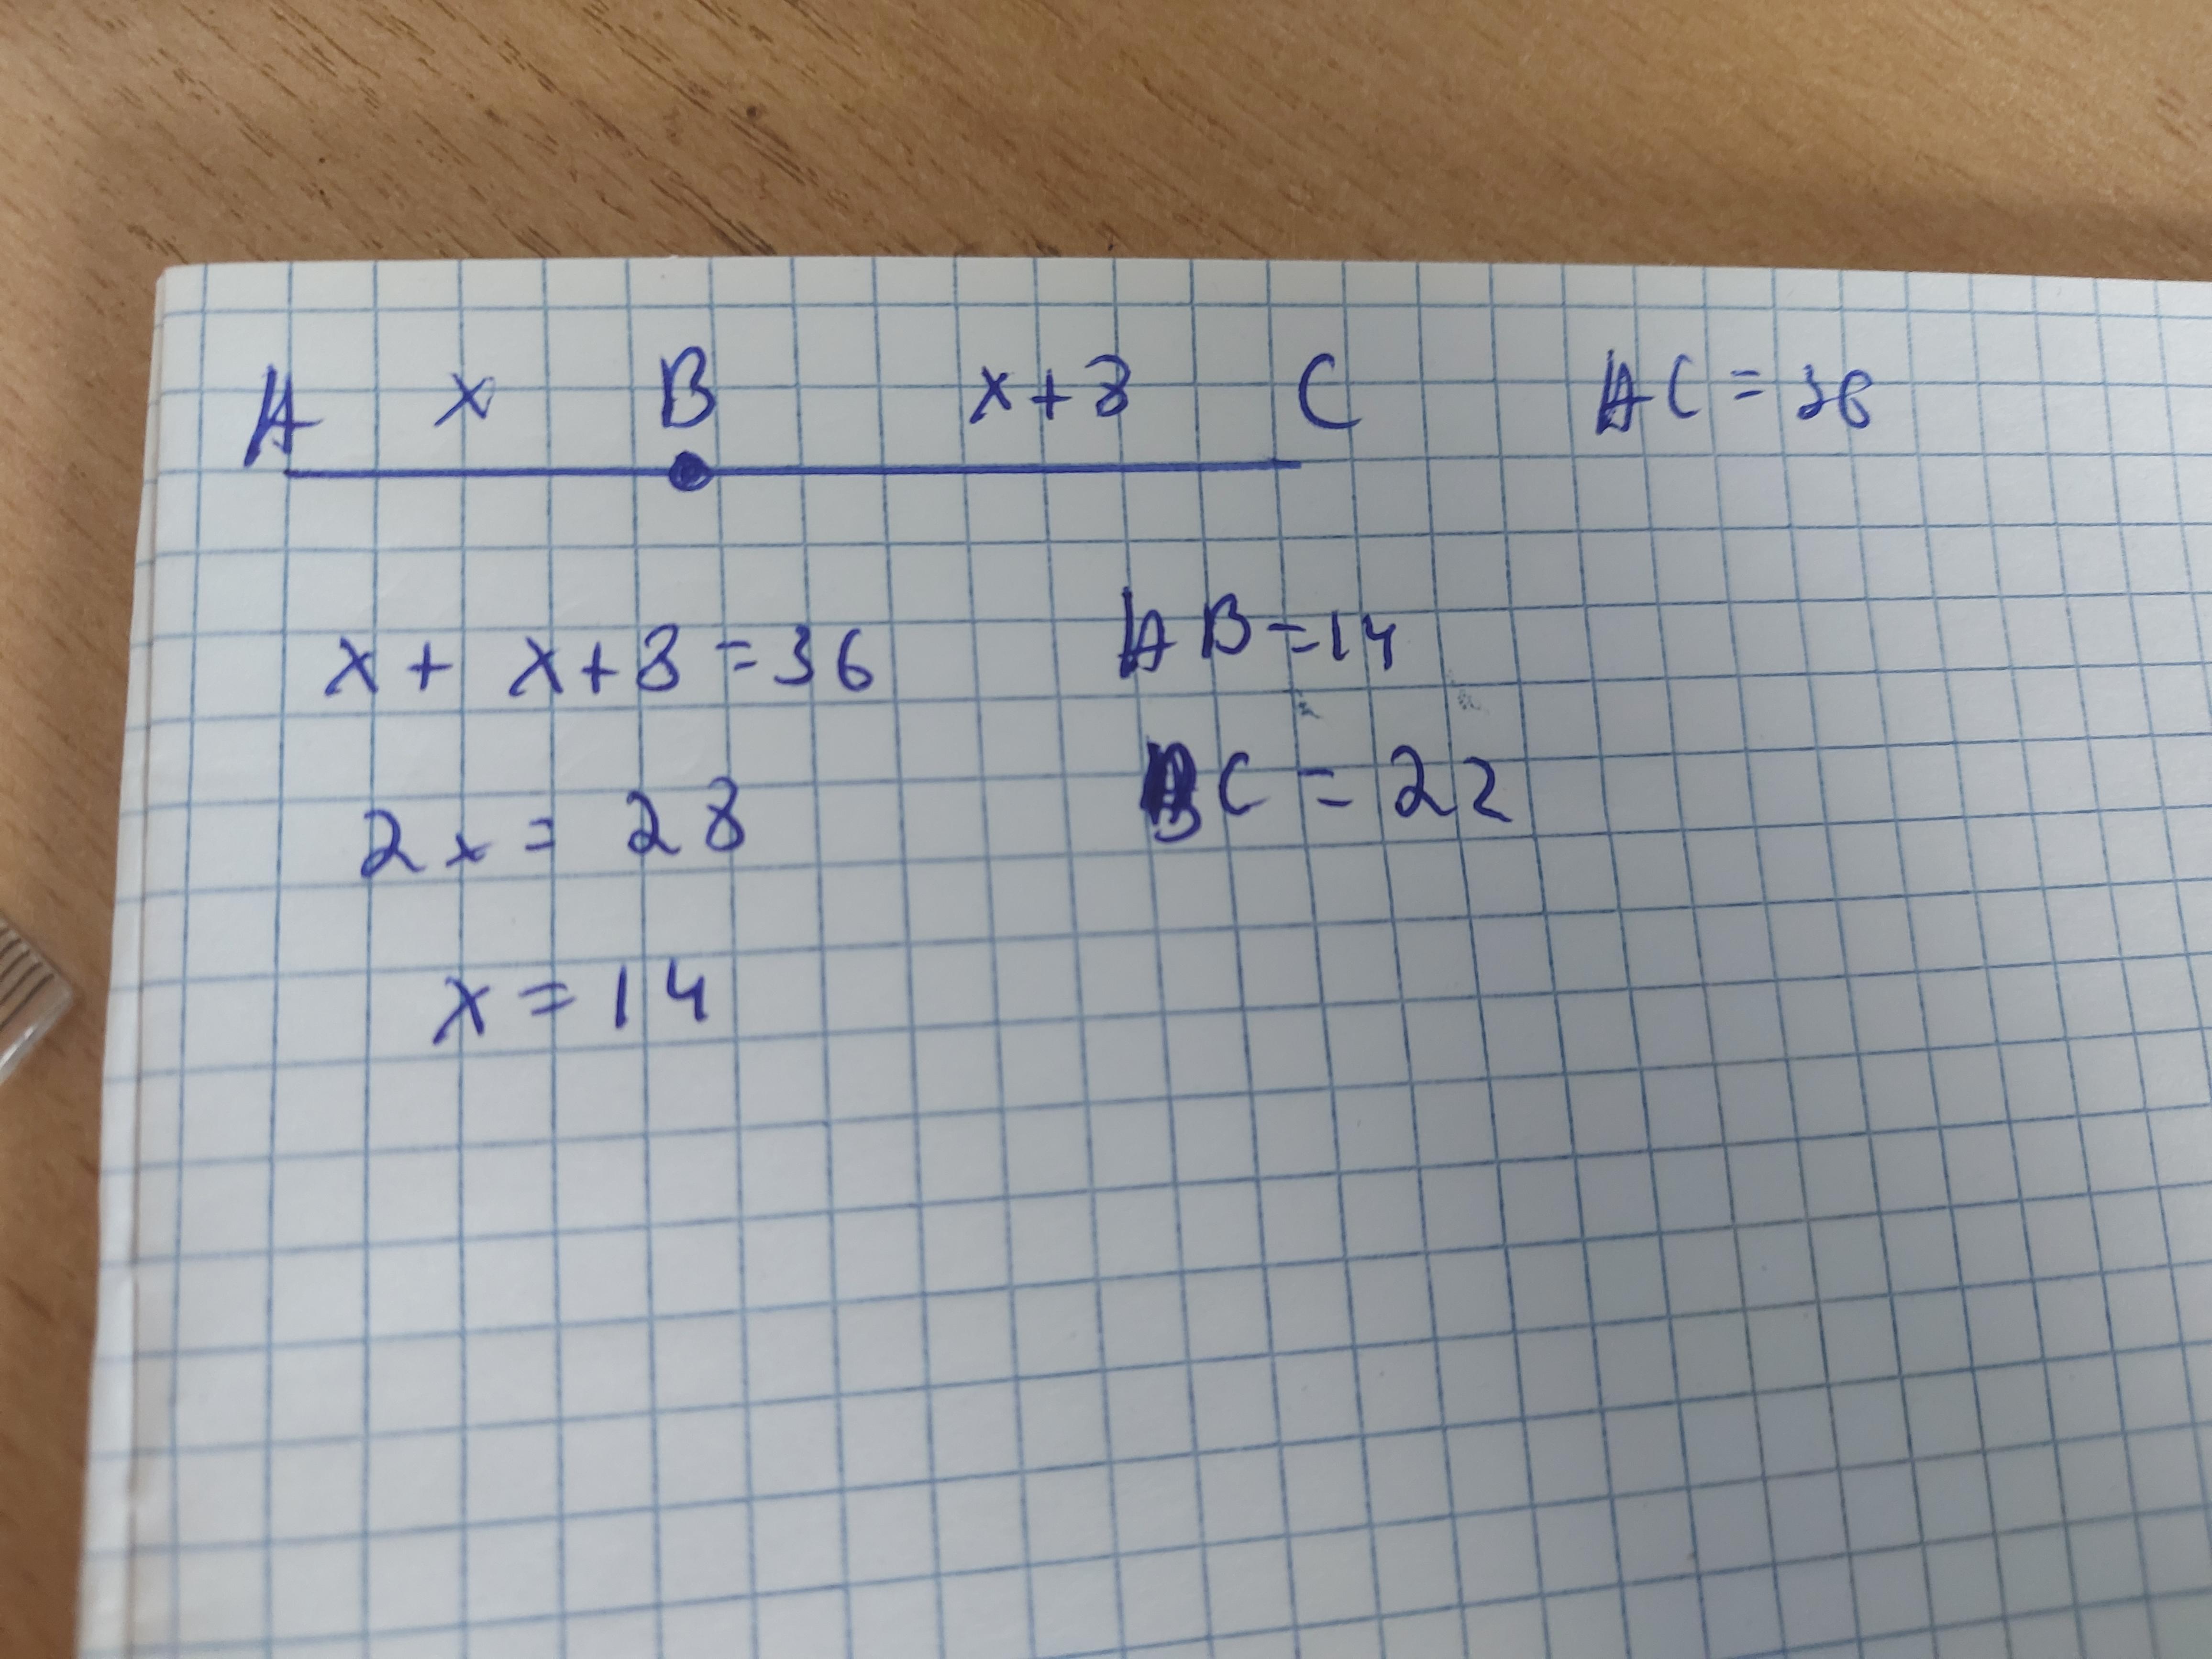 A x B x+8 C AC=36
x+ x+8=36
2x=28
x=14
AB=14
BC=22